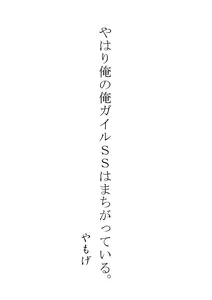 やはり俺の俺ガイルＳＳはまちがっている。
やもげ